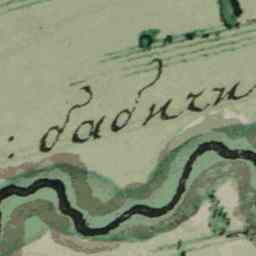 : бабичи